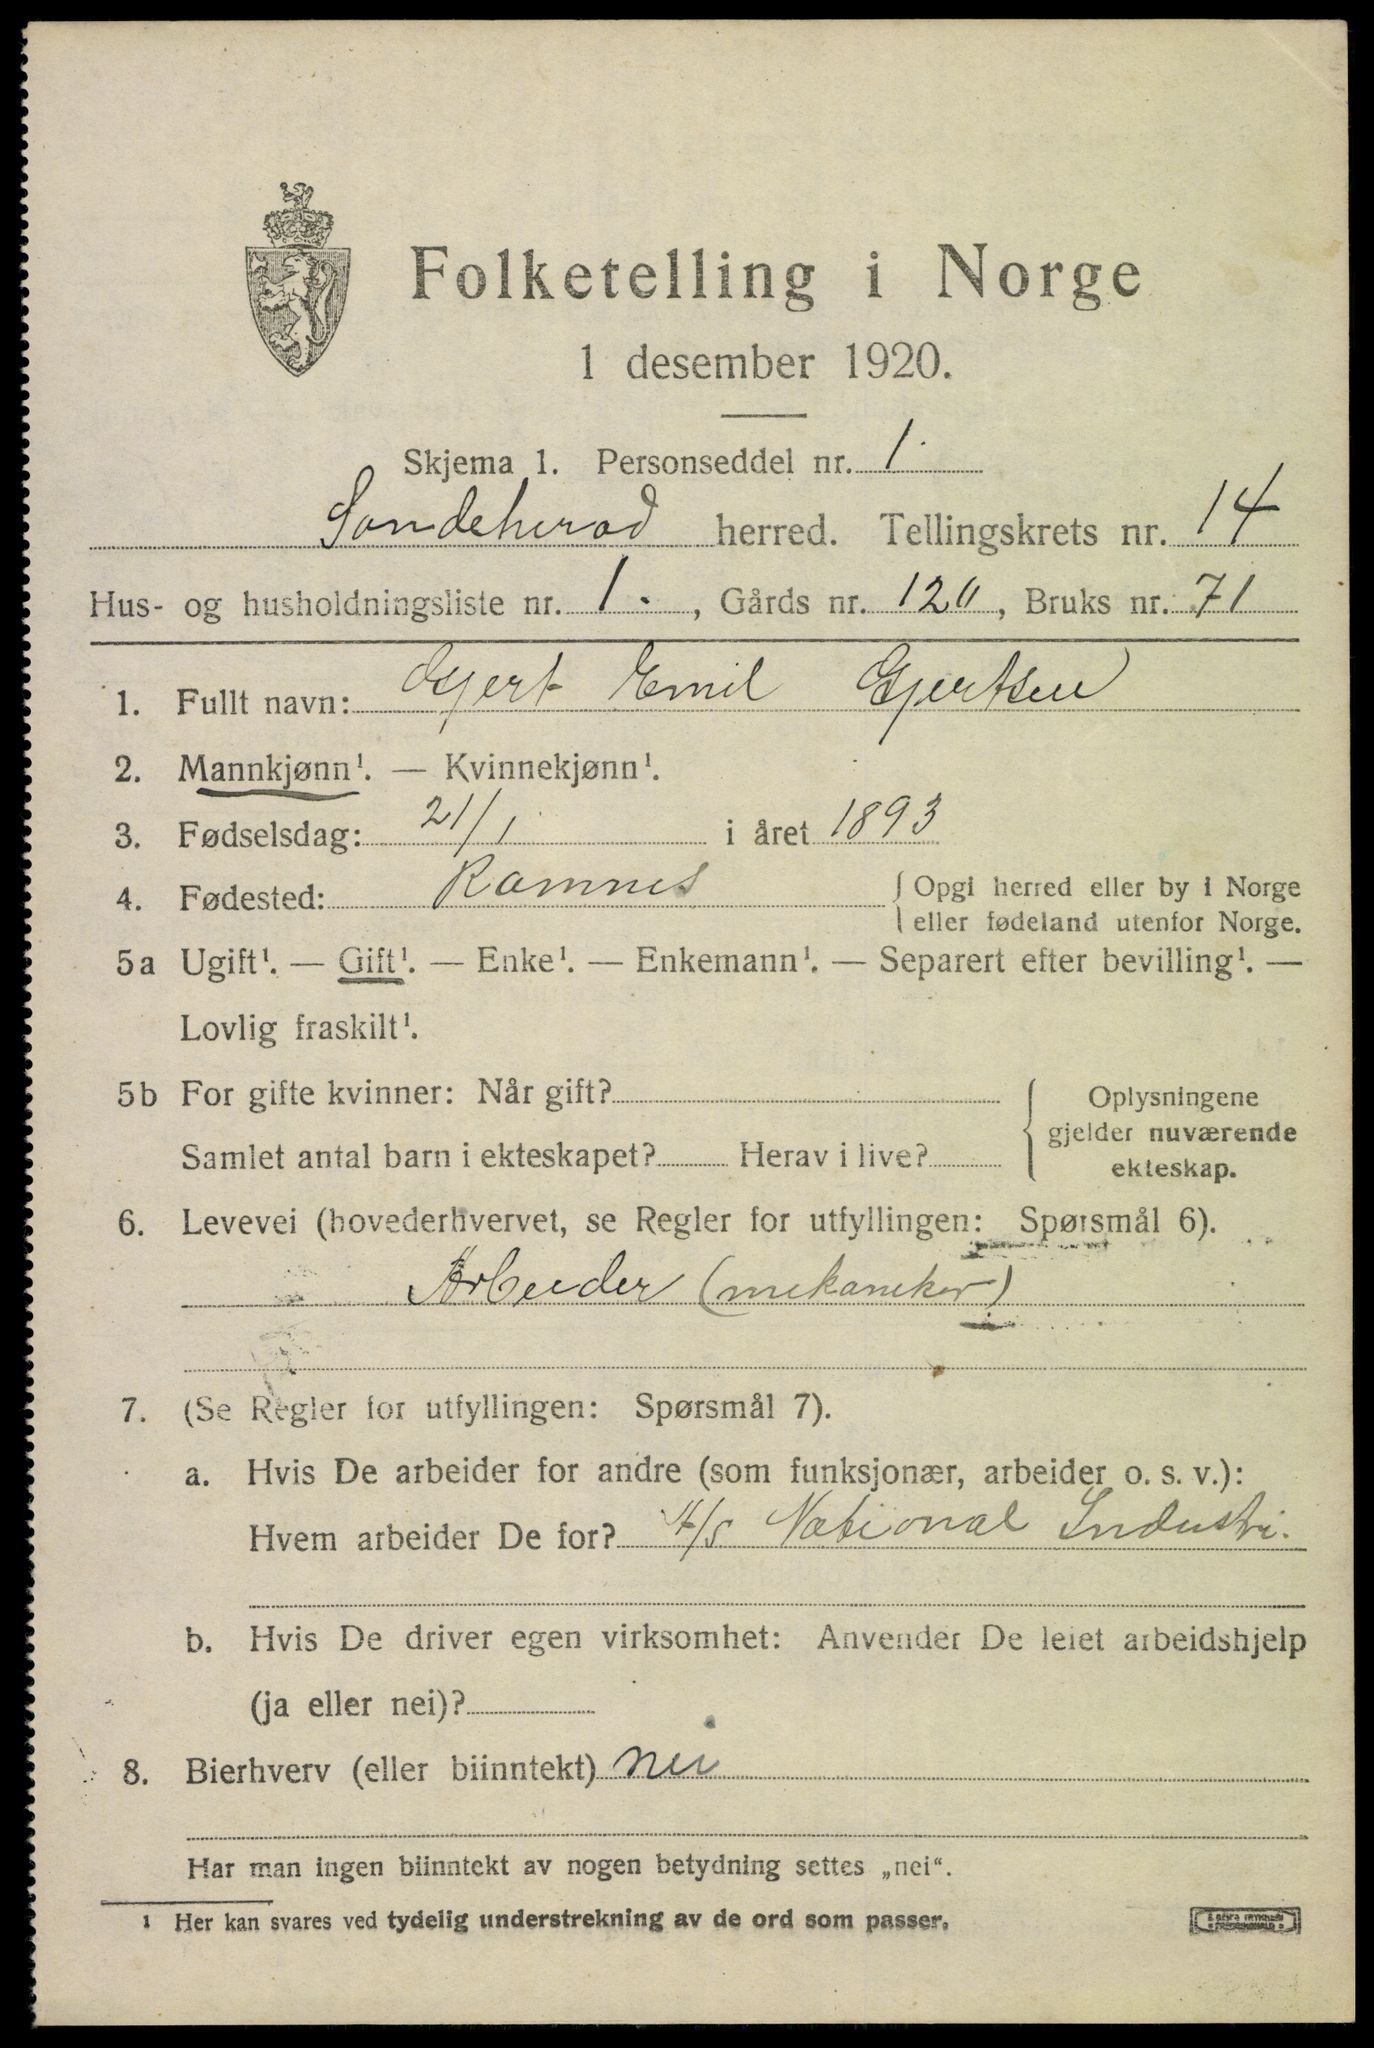 Folketelling i Norge
1 desember 1920.
Skjema 1. Personseddel nr. 1.
Sandeherad herred. Tellingskrets nr. 14
Hus- og husholdningsliste nr. 1. , Gårds nr. 120, Bruks nr. 71
1. Fullt navn: Gjert Emil Gjertsen
2. Mannkjønn¹. — Kvinnekjønn¹.
3. Fødselsdag: 21/1 i året 1893
4. Fødested: Ramnes { Opgi herred eller by i Norge
eller fødeland utenfor Norge.
5a Ugift¹. — Gift¹. — Enke¹. — Enkemann¹. — Separert efter bevilling¹. —
Lovlig fraskilt¹.
5b For gifte kvinner: Når gift?
Samlet antal barn i ekteskapet? Herav i live?
{ Oplysningene
gjelder nuværende
ekteskap.
6. Levevei (hovederhvervet, se Regler for utfyllingen: Spørsmål 6).
Arbeider (mekaniker)
7. (Se Regler for utfyllingen: Spørsmål 7).
a. Hvis De arbeider for andre (som funksjonær, arbeider o. s. v.):
Hvem arbeider De for? A/S National Industri.
b. Hvis De driver egen virksomhet: Anvender De leiet arbeidshjelp
(ja eller nei)?
8. Bierhverv (eller biinntekt) nei
Har man ingen biinntekt av nogen betydning settes „nei“.
¹ Her kan svares ved tydelig understrekning av de ord som passer.